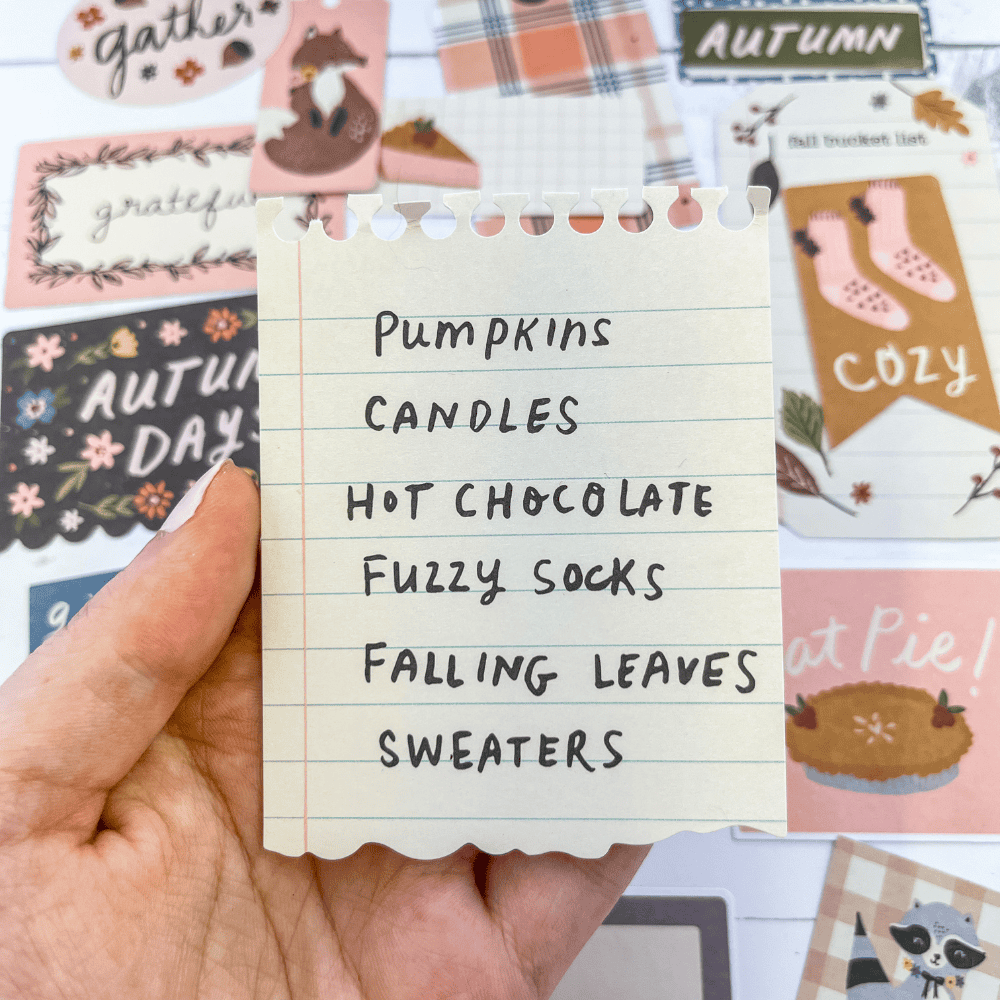 gather
AUTUMN
fall bucket list
grateful
COZY
AUTUMN
DAYS
PUMPKINS
CANDLES
HOT CHOCOLATE
FUZZY SOCKS
FALLING LEAVES
SWEATERS
at Pie!